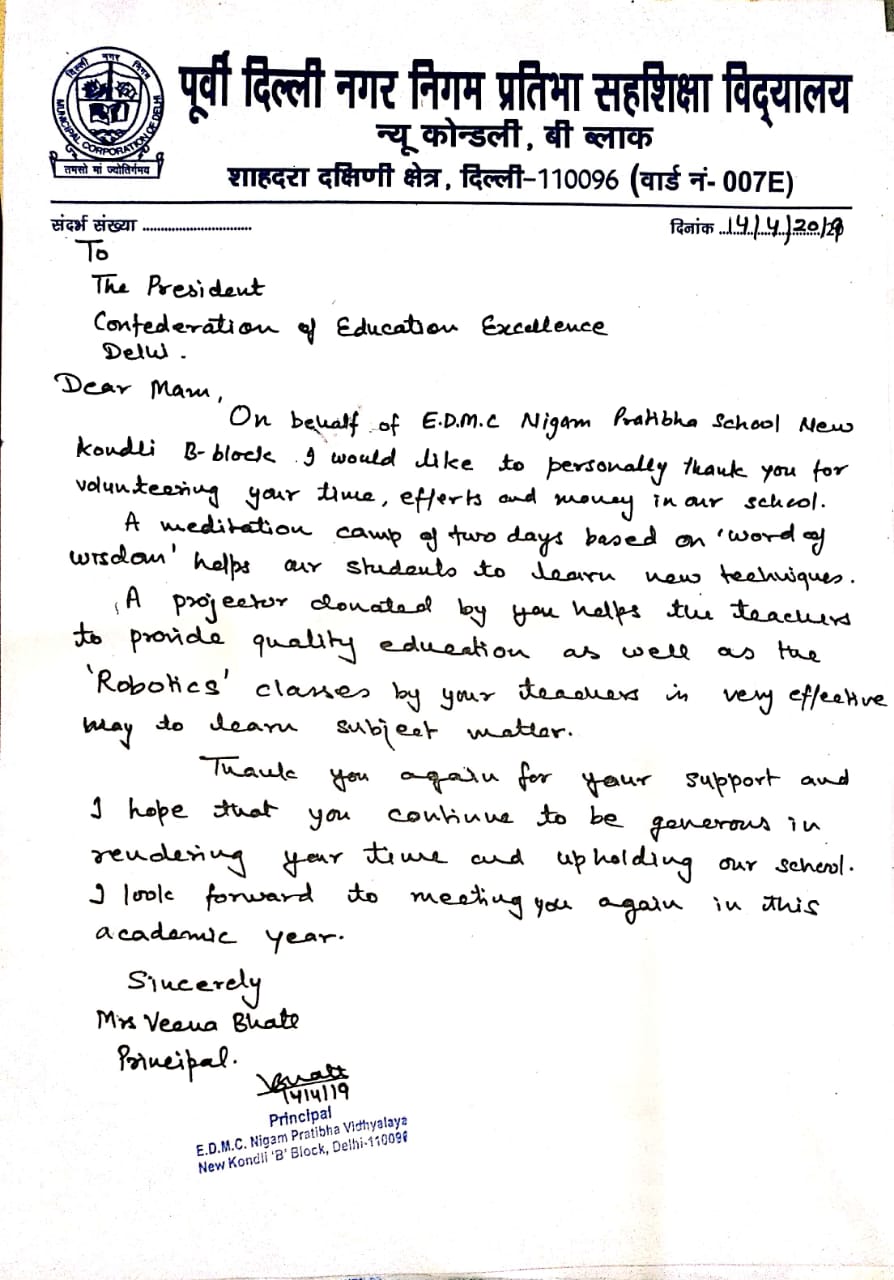 दिल्ली नगर निगम
MUNICIPAL CORPORATION OF DELHI
तमसो मां ज्योतिर्गमय
पूर्वी दिल्ली नगर निगम प्रतिभा सहशिक्षा विद्यालय
न्यू कोन्डली, बी ब्लाक
शाहदरा दक्षिणी क्षेत्र, दिल्ली-110096 (वार्ड नं- 007E)
संदर्भ संख्या ..............................
दिनांक 14/4/2019
To
The President
Confederation of Education Excellence
Delhi.
Dear Mam,
On behalf of E.D.M.C Nigam Pratibha School New
Kondli B-block I would like to personally thank you for
volunteering your time, efforts and money in our school.
A meditation camp of two days based on 'word of
wisdom' helps our students to learn new techniques.
A projector donated by you helps the teachers
to provide quality education as well as the
'Robotics' classes by your teachers in very effective
way to learn subject matter.
Thank you again for your support and
I hope that you continue to be generous in
rendering your time and upholding our school.
I look forward to meeting you again in this
academic year.
Sincerely
Mrs Veena Bhatt
Principal.
VBhatt
14/4/19
Principal
E.D.M.C. Nigam Pratibha Vidhyalaya
New Kondli 'B' Block, Delhi-110096